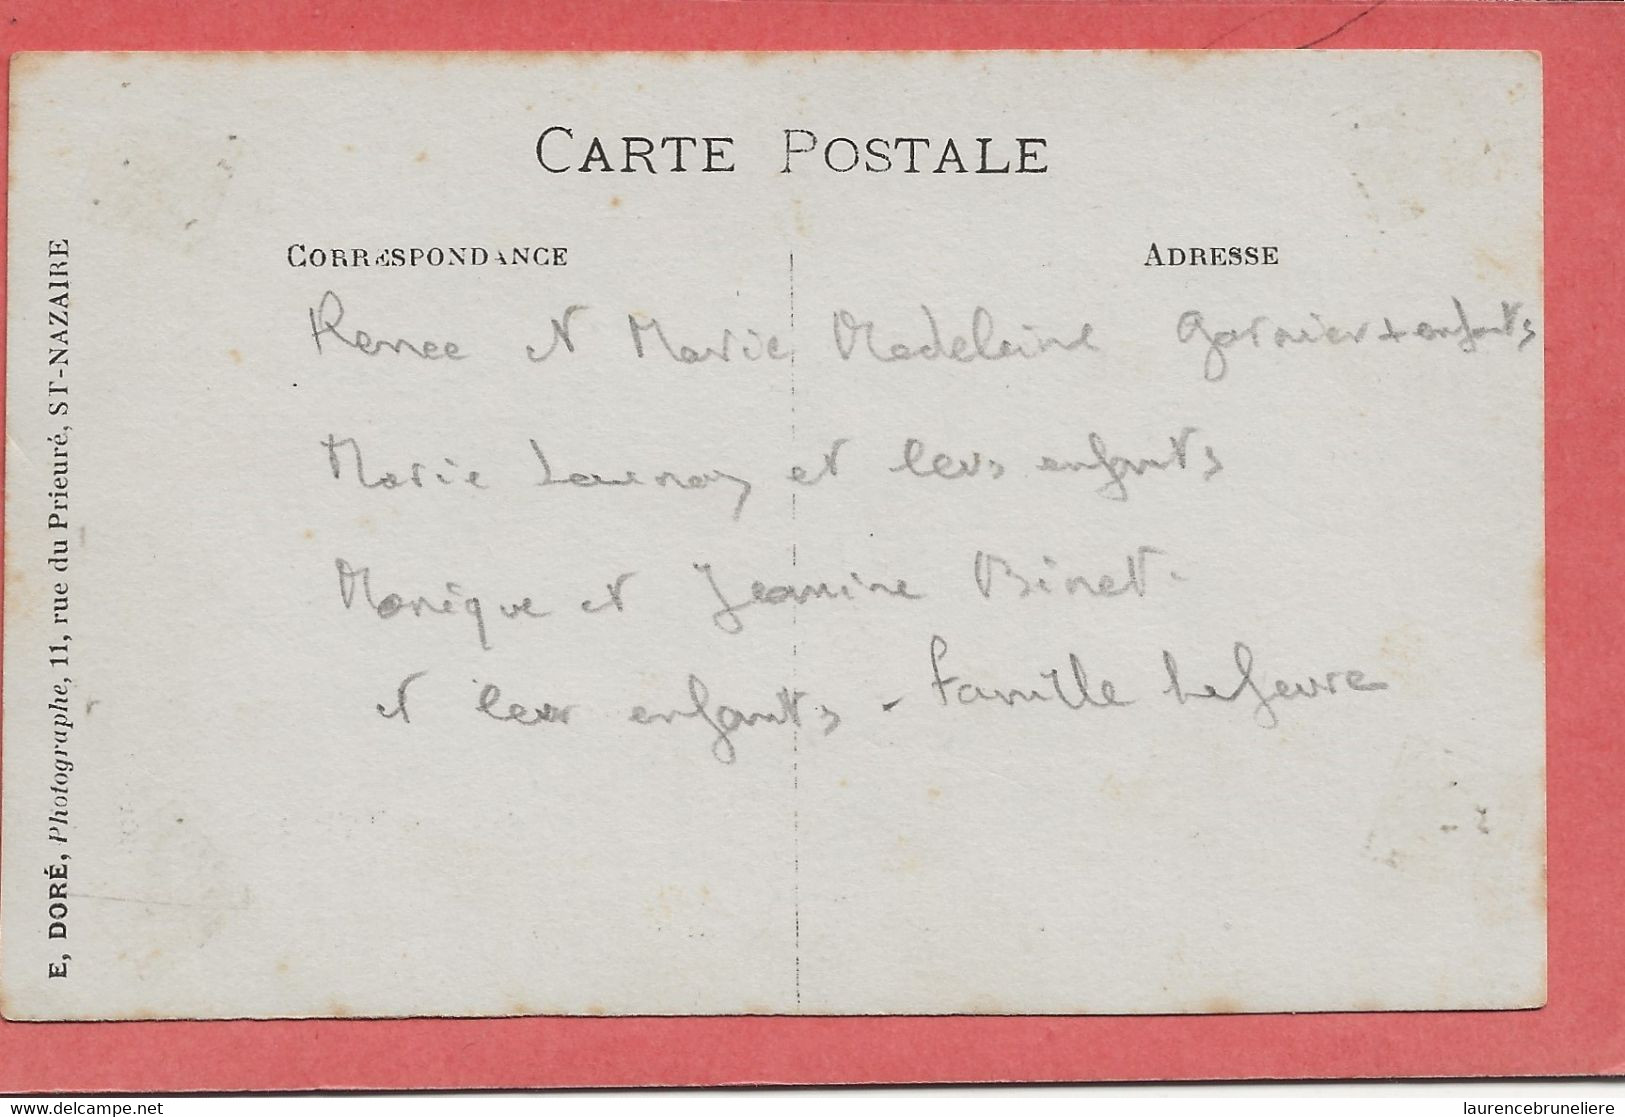 CARTE POSTALE
CORRESPONDANCE
ADRESSE
Renee et Marie Madeleine Garnier + enfants
Marie Launay et leurs enfants
Monique et Jeannine Binet.
et leur enfants - famille Lefeuvre
E. DORÉ, Photographe, 11, rue du Prieuré, ST-NAZAIRE
delcampe.net
laurencebruneliere